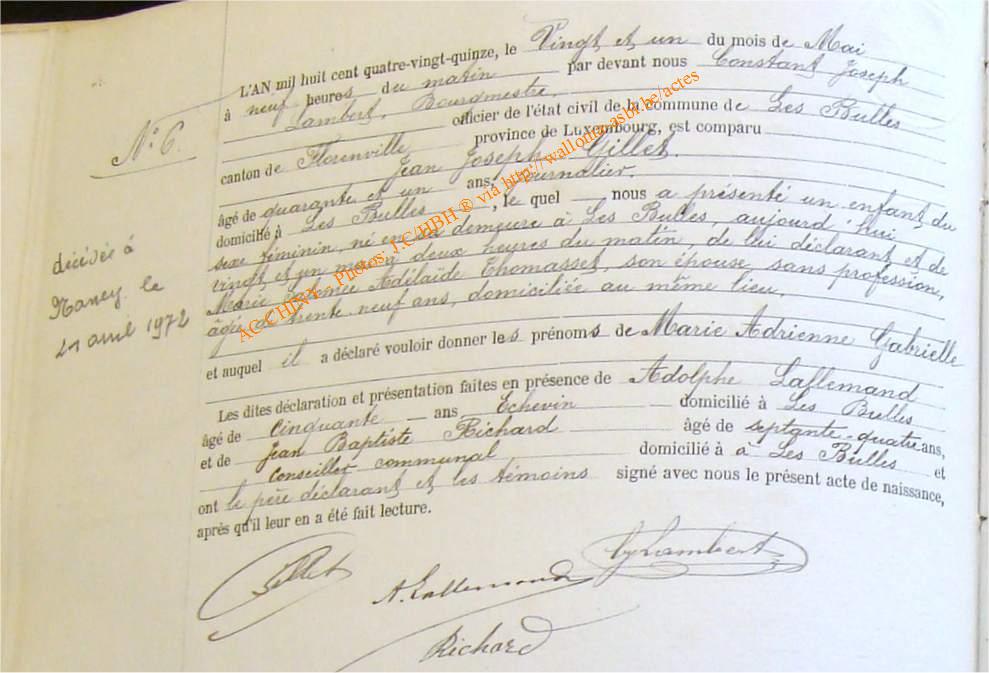 L'AN mil huit cent quatre-vingt-quinze, le Vingt et un du mois de Mai
à neuf heures du matin par devant nous Constant Joseph
Lambert, Bourgmestre, officier de l'état civil de la commune de Les Bulles
canton de Florenville province de Luxembourg, est comparu
Jean Joseph Gillet.
âgé de quarante et un ans, Journalier.
domicilié à Les Bulles, le quel nous a présenté un enfant du
sexe féminin, né en sa demeure à Les Bulles, aujourd'hui
vingt et un mai à deux heures du matin, de lui déclarant et de
Marie Adélaïde Thomasset, son épouse sans profession,
âgée de trente neuf ans, domiciliée au même lieu,
et auquel il a déclaré vouloir donner les prénoms de Marie Adrienne Gabrielle
Les dites déclaration et présentation faites en présence de Adolphe Lallemand
âgé de Cinquante ans Echevin domicilié à Les Bulles
et de Jean Baptiste Richard âgé de septante-quatre ans,
Conseiller communal, domicilié à à Les Bulles et
ont le père déclarant et les témoins signé avec nous le présent acte de naissance,
après qu'il leur en a été fait lecture.
N° 6.
décédée à
Nancy le
21 avril 1972
Gillet
A. Lallemand
CJ Lambert
Richard
AC CHINY - Photos J.C/HBH ® via http://wallonia.asbl.be/actes